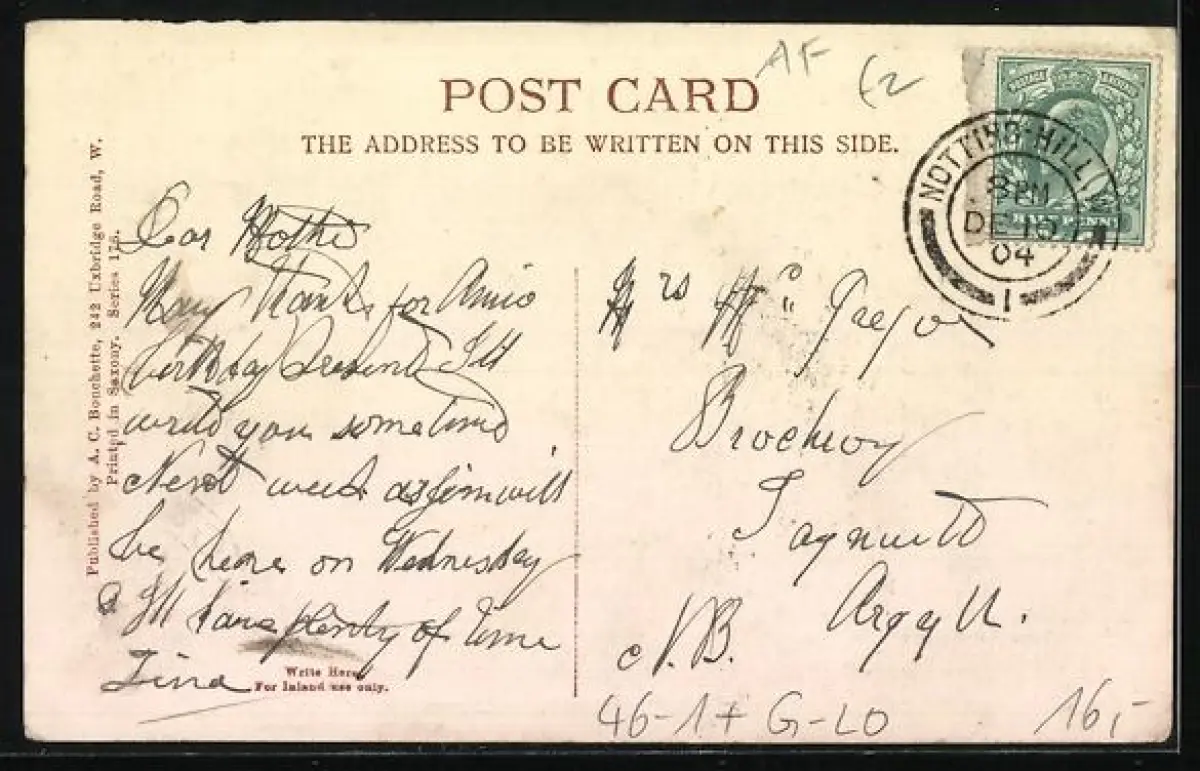 AF
£2
POST CARD
THE ADDRESS TO BE WRITTEN ON THIS SIDE.
NOTTING-HILL.W
8 PM
DE 15
04
1
HALF PENNY
Published by A. C. Bouchette, 242 Uxbridge Road, W.
Printed in Saxony. Series 178.
Dear Mother
Many thanks for
birthday Present Ill
write you sometime
Next week as Jim will
be here on Wednesday
& Ill have plenty of time
Tina
Write Here
For Inland use only.
Mrs Mc Gregor
Brochroy
Taynuilt
Argyll.
N.B.
46-1+ G-LO
16,-